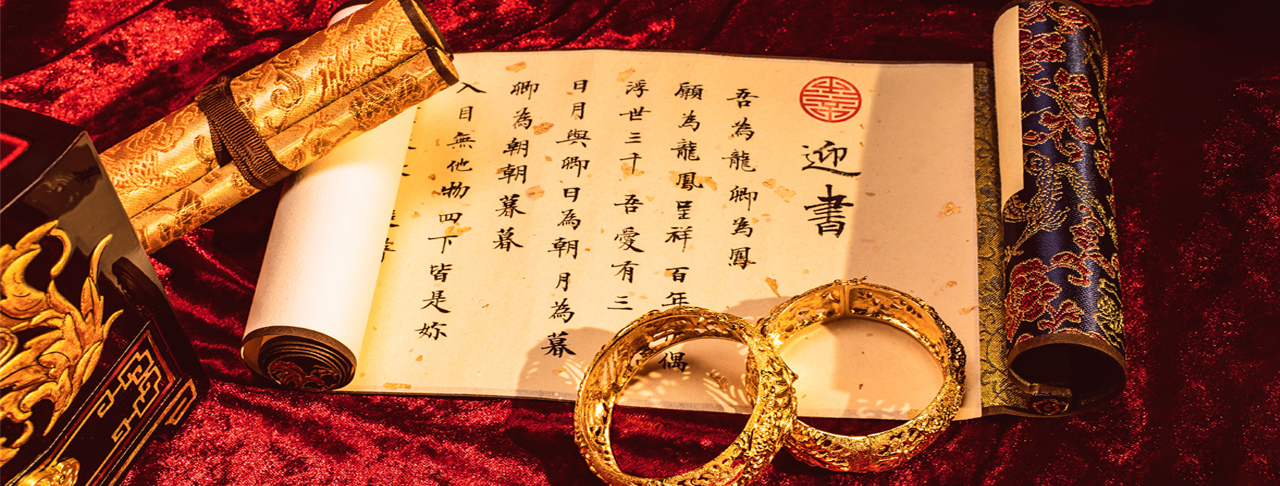 迎書
吾為龍卿為鳳
願為龍鳳呈祥百年偶
浮世三千吾愛有三
日月與卿日為朝月為暮
卿為朝朝暮暮
入目無他物四下皆是妳